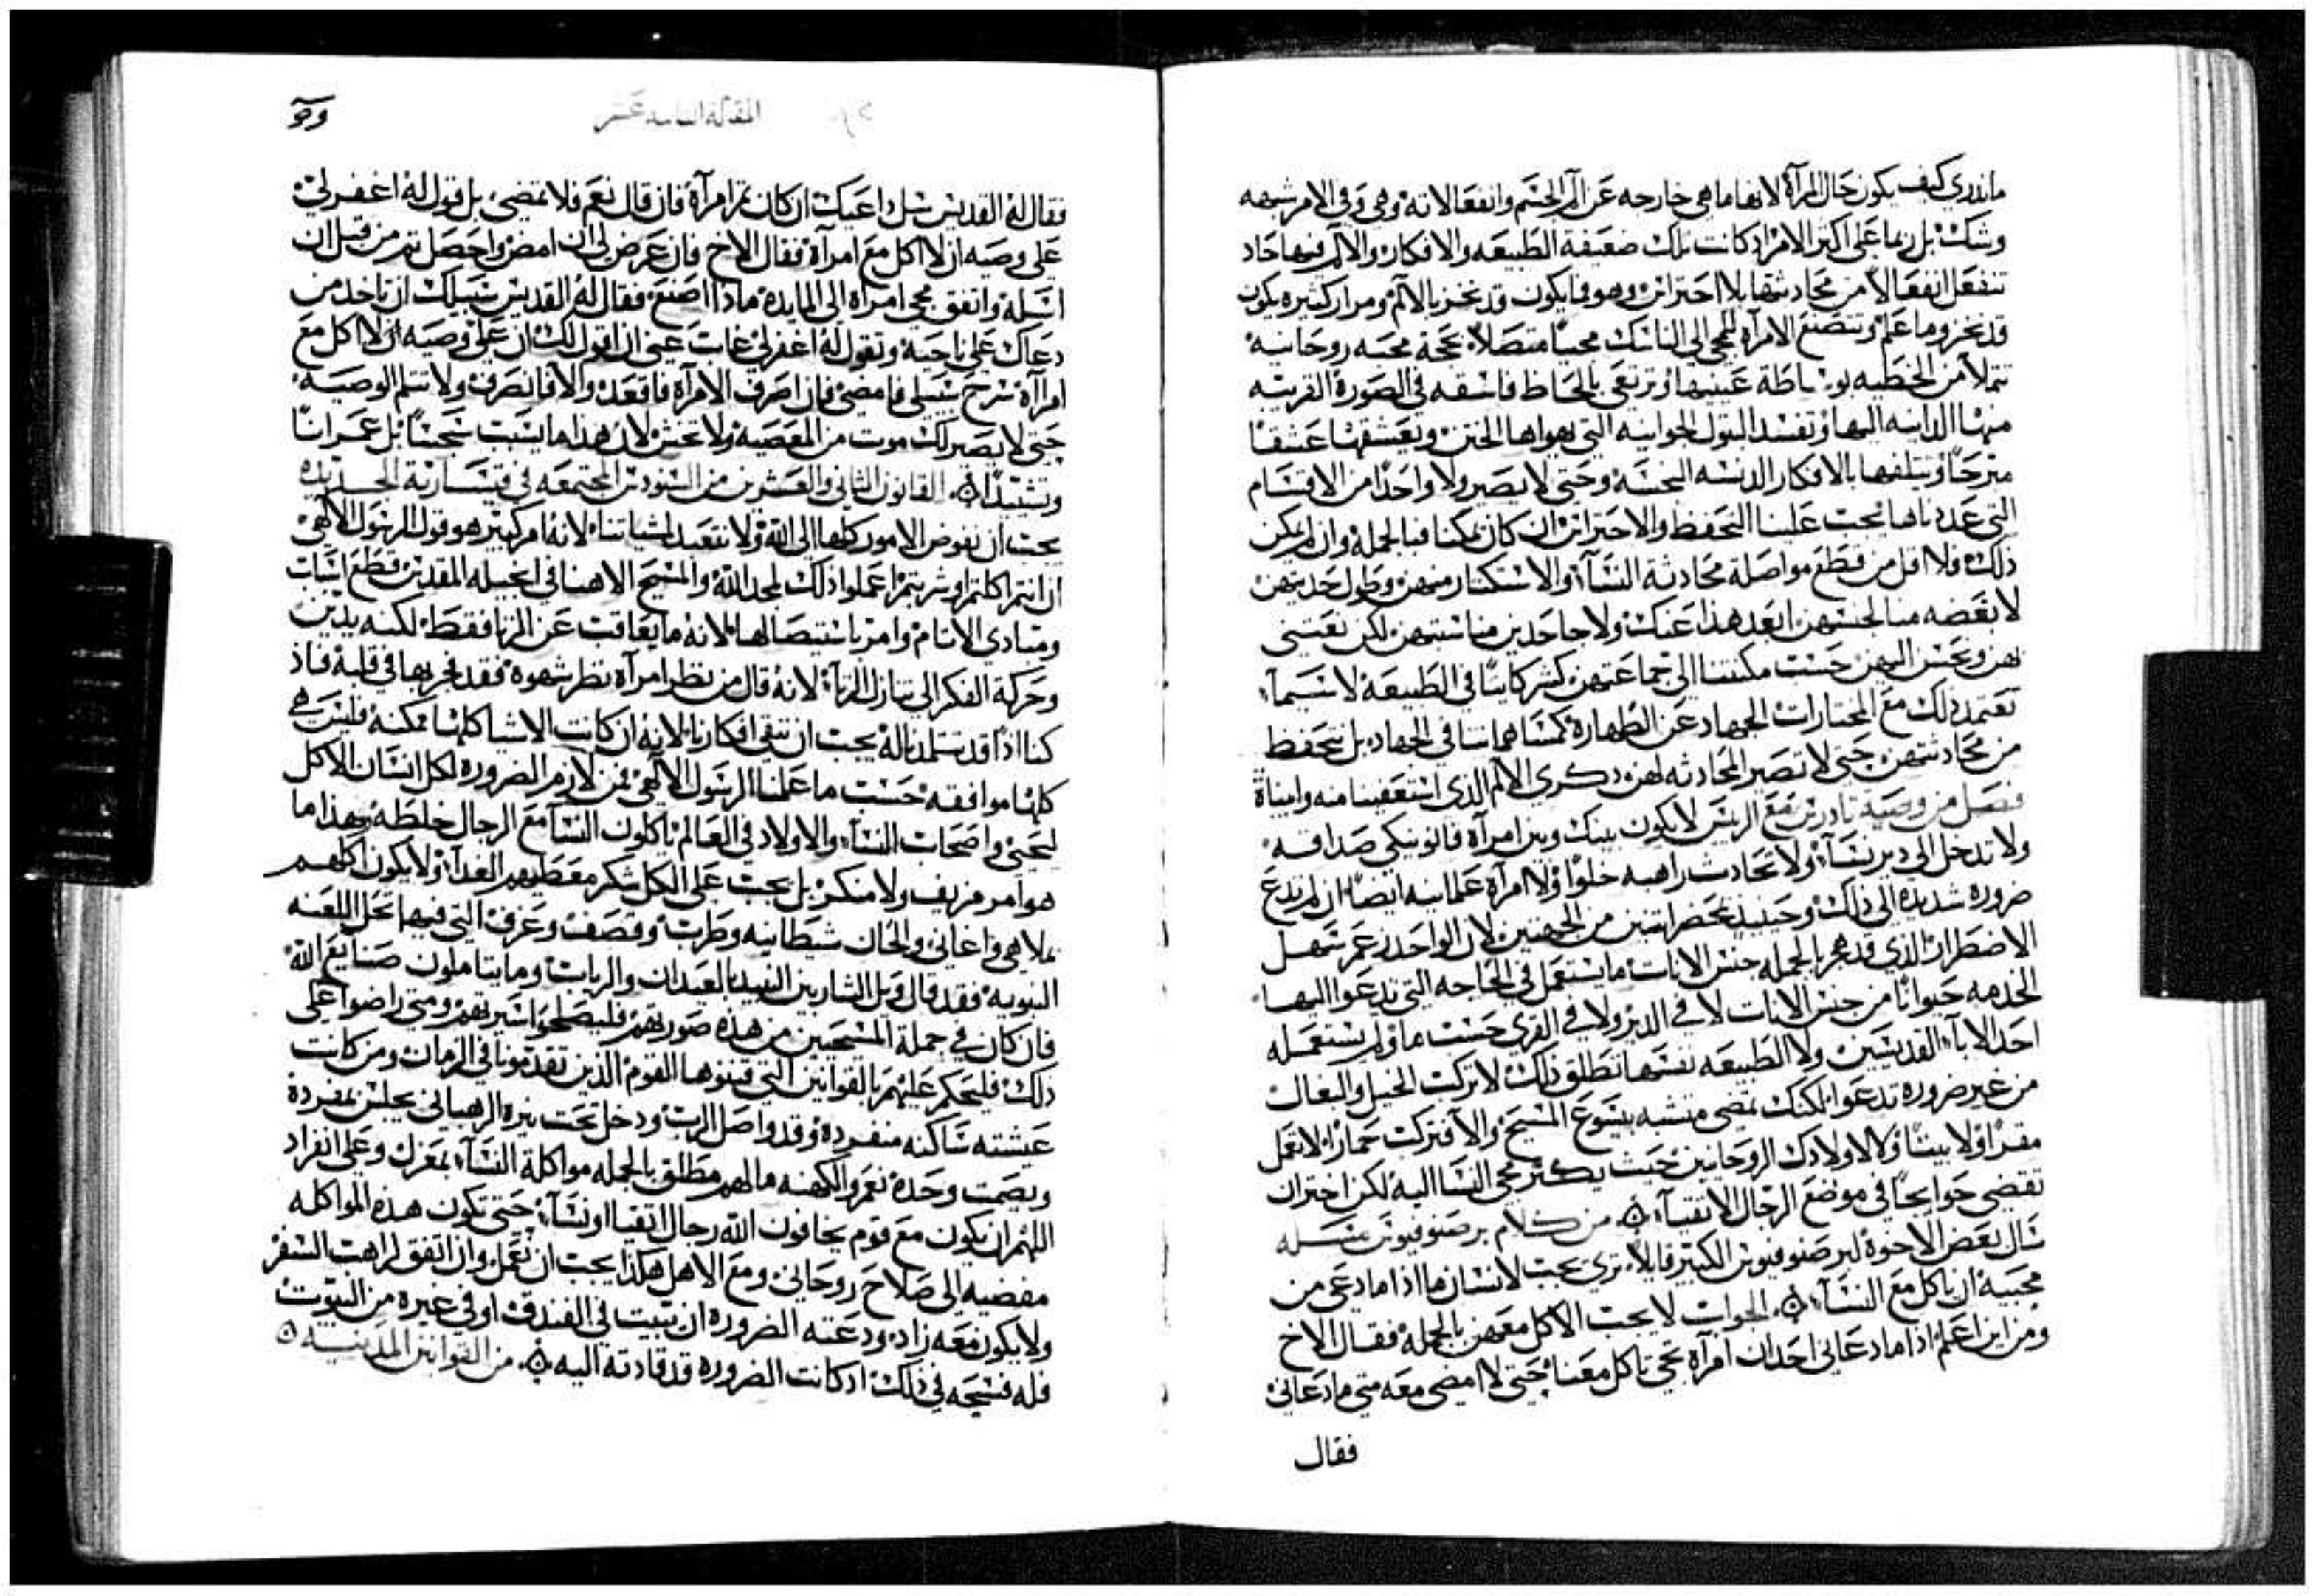 ماندري كيف يكون حال المرآة لانها ما هي خارجه عن آلم الجسم وانفعالاته وهي وفي الامر شبهه
وشك بل ربما على اكتر الامر اد كانت تلك ضعيفة الطبيعه والافكار والالم فيها حاد
تنفعل انفعالاً من محادثتها بلا احتراس وهو فما يكون قد نخز بالالم ومرار كثيره يكون
قد نخز وما علم وتتصنع الامرآه للمجي الى الناسك مجيًا متصلاً بحجة محبه روحانيه
تتملا من الخطيه بوساطة عينيها وترتقى بالحاظ فاسقه في الصوره القريبه
منها الدانيه اليها وتفسد البتول الجوانيه التي يهواها الختن ويعشقها عشقًا
مترحًا وتتلفها بالافكار الدنسه النجسه وحتى لا يصير ولا واحدًا من الاقسام
التي عددناها يجب علينا التحفظ والاحتراس ان كان يمكنا فبالجمله وان لم يكن
ذلك فلا اقل من قطع مواصلة محادثة النسآء والاستكثار منهن وطول حديثهن
لا بغضه منا لجنسهن ابعد هذا عنك ولا جاحدين مناسبتهن لكن نعتني
بهن ونحسن اليهن حسب مكنتنا الى جماعتهن كشركاينا في الطبيعة لاسيمآ
نعتمد ذلك مع المختارات الجهاد عن الطهارة كمساهماتنا في الجهاد بل نتحفظ
من محادثتهن حتى لا تصير المحادثه لهن ذكرى الالم الذي استعفينا منه وابيناة
فصل من وصية تادرس مع الريس لا يكون بينك وبين امرآة قانونيكي صداقه
ولا تدخل الى دير نسآء ولا تحادث راهبه خلوًا ولا امرآة عمانيه ايضًا ان لم تدع
ضروره شديده الى ذلك وحينيد يحضر اثنين من الجهتين لان الواحد زعم سهل
الاضطرار الذي قد هجر بالجمله جنس الاناث ما يستعمل في الحاجه التي تدعوا اليها
الخدمه حيوانًا من جنس الاناث لا في الدير ولا في القرى حسب ما ولم يستعمله
احد الابآء القديسين ولا الطبيعه نفسها تطلق ذلك لا تركب الخيل والبغال
من غير ضروره تدعوا لكنك تمضي متشبه بيسوع المسيح والا فتركب حمارًا لا تعمل
مقرًا ولا بيتًا وكالاولادك الروحانيين حيث يكثر مجي النسا اليه لكن اختران
تقضي حوايجًا في موضع الرجال الاتقيآء من كلام برصنوفيوس مسله
سال بعض الاخوة لبرصنوفيوس الكبير قايلاً ترى يجب لانسان ما اذا ما دعى من
محبيه ان ياكل مع النسآء الجواب لا يجب الاكل معهن بالجمله فقال الاخ
ومن اين اعلم اذا ما دعاني احد ان امرآة تجي تاكل معنا حتى لا امضي معه متى ما دعاني
فقال
المقاله عشر
فقال له القديس سل داعيك ان كان تم امرآة فان قال نعم فلا تمضي بل قول له اغفر لي
على وصيه ان لا اكل مع امرآة فقال الاخ فان عرض لي ان امض واحصل تم من قبل ان
اسله واتفق مجي امرآه الى المايده ماذا اصنع فقال له القديس سبيلك ان تاخذ من
دعاك على ناحية وتقول له اغفر لي غاب عني ان اقول لك ان علي وصيه ان لا اكل مع
امرآة سرح سبيلي فامضي فان اصرف الامرآة فاقعد والا فانصرف ولا تسلم الوصيه
حتى لا يصير لك موت من المعصيه ولا تخش لان هذا ما يسبب سجسًا بل عمرانًا
وتشييدًا القانون الثاني والعشرين من السنودس المجتمعه في قيسارية الجديده
يجب ان نفوض الامور كلها الى الله ولا نتعبد لمشياتنا لانه امر كبير هو قول الرسول الالهي
ان انتم اكلتم او شربتم اعملوا ذلك لمجد الله والمسيح الاهنا في انجيله المقدس قطع اسباب
ومبادى الاتام وامر باستيصالها لانه ما يعاقب عن الزنا فقط لكنه يدين
وحركة الفكر الى تنازل الزنآء لانه قال من نظر امرآه نظر شهوه فقد فجر بها في قلبه فاذ
كنا اذًا قد تتلمدنا له يجب ان ننقى افكارنا لانه ان كانت الاشيا كلها ممكنه فليس هي
كلها موافقه حسب ما علمنا الرسول الالهي فمن لازم الضروره لكل انسان الاكل
ليحيى واصحاب النسآء والاولاد في العالم ياكلون النسآ مع الرجال خلطه فهذا ما
هو امر مزيف ولا منكر بل يجب على الكل شكر معطيهم الغدآء ولا يكون اكلهم
بملاهي واغاني والحان شيطانيه وطرب وقصف وعزف التي فيها تحل اللعنه
النبويه فقد قال ويل الشاربين النبيد بالعيدان والرباب وما يتاملون صنايع الله
فان كان في جملة المسيحيين من هذه صورتهم فليصلحوا سيرتهم ومتى راضوا على
ذلك فليحكم عليهم بالقوانين التي قننوها القوم الذين تقدمونا في الزمان ومن كانت
عيشته ساكنه منفرده وقد واصل الرب ودخل تحت نيره الرهباني يجلس بمفرده
ويصمت وحده نعم والكهنه ما لهم مطلق بالجمله مواكلة النسآء بمعزل وعلى انفراد
اللهم ان يكون مع قوم يخافون الله رجال اتقيا او نسآء حتى تكون هذه المواكله
مفضيه الى صلاح روحاني ومع الاهل هكذا يجب ان نعمل وان اتفق لراهب السفر
ولا يكون معه زاد ودعته الضروره ان تبيت في الفندق او في غيره من البيوت
فله فسحه في ذلك اد كانت الضروره قد قادته اليه من القوانين المدنيه